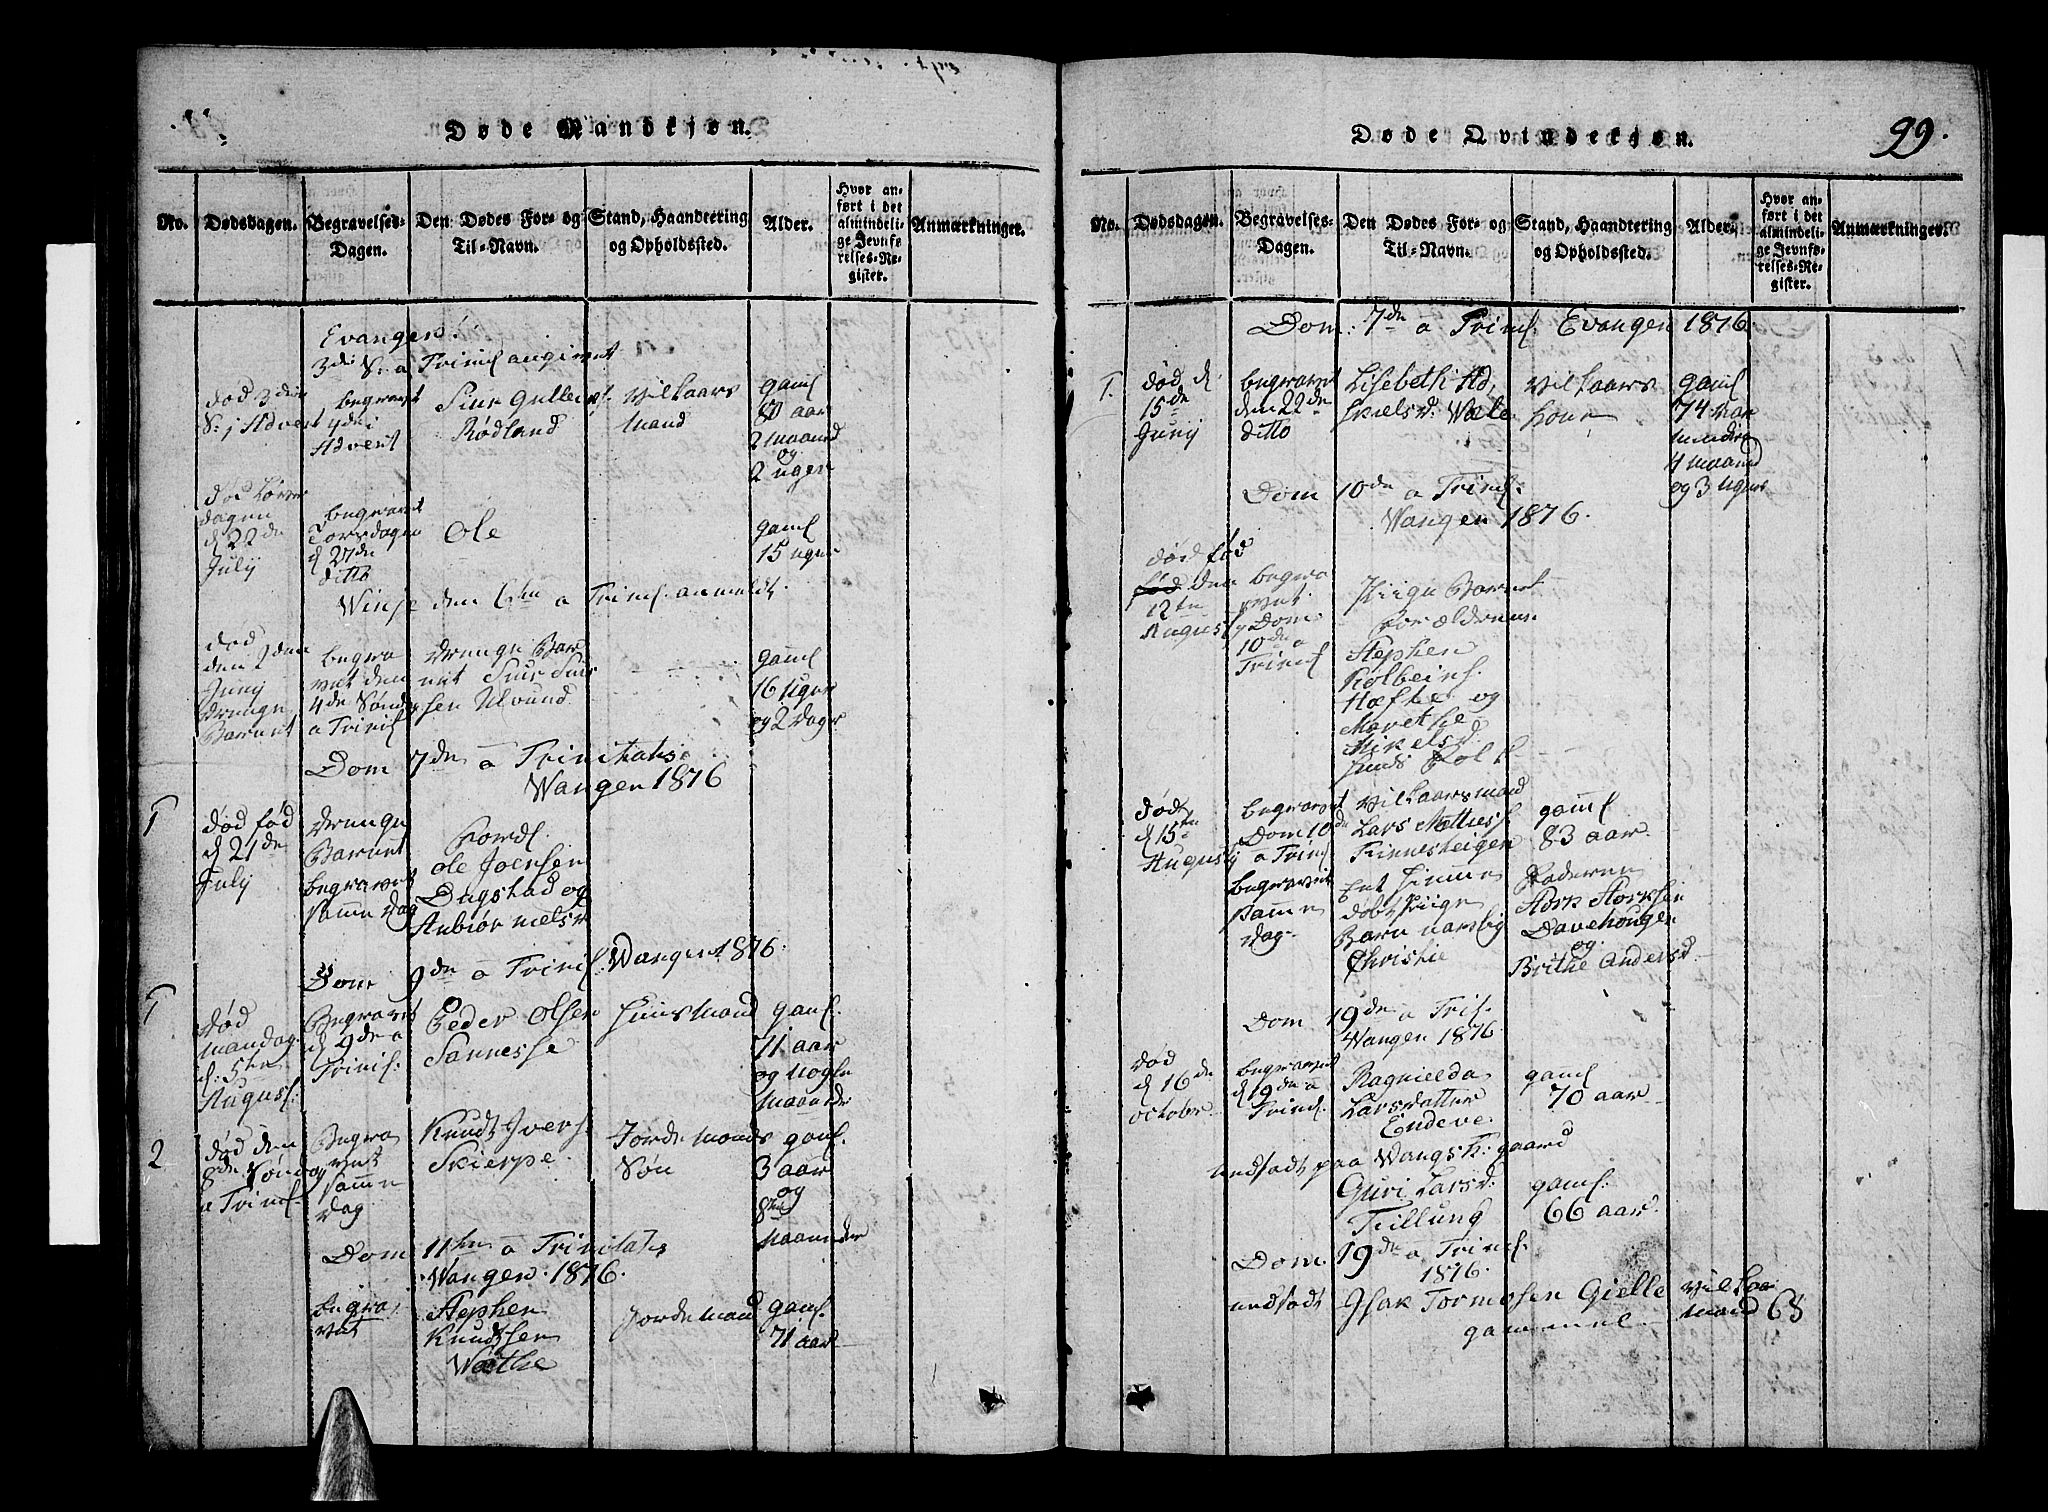 Døde Mandkjøn.
No.
Dødsdagen.
Begravelses-
Dagen.
Den Dødes For- og
Til-Navn.
Stand, Haandtering
og Opholdssted.
Alder.
Hvor an-
ført i det
almindeli-
ge Jevnfø-
relses-Re-
gister.
Anmærkninger.
Evanger.
3die S: a Trinit angivet
død 3die
S: j Advent
begravet
4de i
Advent
Siur
Rødland
Vilkaars
mand
gaml
80 aar
2 maaned
og
2 uger
død Løver
dagen
d 22de
July
begravet
Torsdagen
d 27de
ditto
Ole
gaml
15 uger
Winje den 6te a Trinit. anmeldt
død
den 2den
Juny
drenge
Barnet
begra
vet den
4de Sønd
a Trinit
drenge Bar
net Siur Siur
sen Ulvund
gaml
16 Uger
og 2 dage
Dom 7de a Trinitatis
Wangen 1816
1
død fød
d 21de
July
drenge
Barnet
begravet
samme dag
Ford.
Ole Joensen
Dugstad og
Anbiør nielsd
Dom 9de a Trinit. Wangen 1816
1
død
mandag
d: 5te
August.
Begravet
d 9de a
Trinit:
Peder Olsen
Sannesse
Huusmand
gaml.
71 aar
og Nogle
Maaneder
2
død den
8de Søndag
a Trinit
Begra
vet
samme
dag
Knudt Ivers.
Skierpe
Jordemands
Søn
gaml.
3 aar
og
8te
Maaneder
Dom 11te a Trinitatis
Wangen 1816
Begra
vet
Stephen
Knudtsen
Wæthe
Jordemand
gaml.
71 aar
Døde Qvindekjøn.
99.
No.
Dødsdagen.
Begravelses-
Dagen.
Den Dødes For- og
Til-Navn.
Stand, Haandtering
og Opholdssted.
Alder.
Hvor an-
ført i det
almindeli-
ge Jevnfø-
relses-Re-
gister.
Anmærkninger.
Dom: 7de a Trinit Evangen 1816
1.
død d
15de
Juny
begravet
den 22de
ditto
Lisebeth
Wæle
Vilkaars
kone
gaml
74 aar
mindre
4 maaned
og 3 Uger
Dom 10de a Trinit:
Wangen 1816.
død fød
den
12te
Augusty
begra
vet
Dom
10de a
Trinit
Piige Barnet
Forældrene
Stephen
Kolbeins.
Hæfte og
Marethe
Mikelsd.
død
d 15te
Augusty
begravet
Dom 10de
a Trinit
Vilkaarsmand
Lars
gaml
83 aar
begravet
samme
dag
Et Hiemme
døbt Piige
Barn navnlig
Christie
Faderen
Størk Størksen
Davehougen
og
Brithe Andersd.
Dom 19de a Trit.
Wangen 1816
død
d 16de
October
begravet
d 19de a
Trinit.
Ragnilda
Larsdatter
Endeve
gaml
70 aar
gaard
Guri Larsd.
Tillung
gaml.
66 aar.
Dom. 19de a Trinit:
1816
Isak Tormosen Gielle
gammel
Vilkaa
mand 65